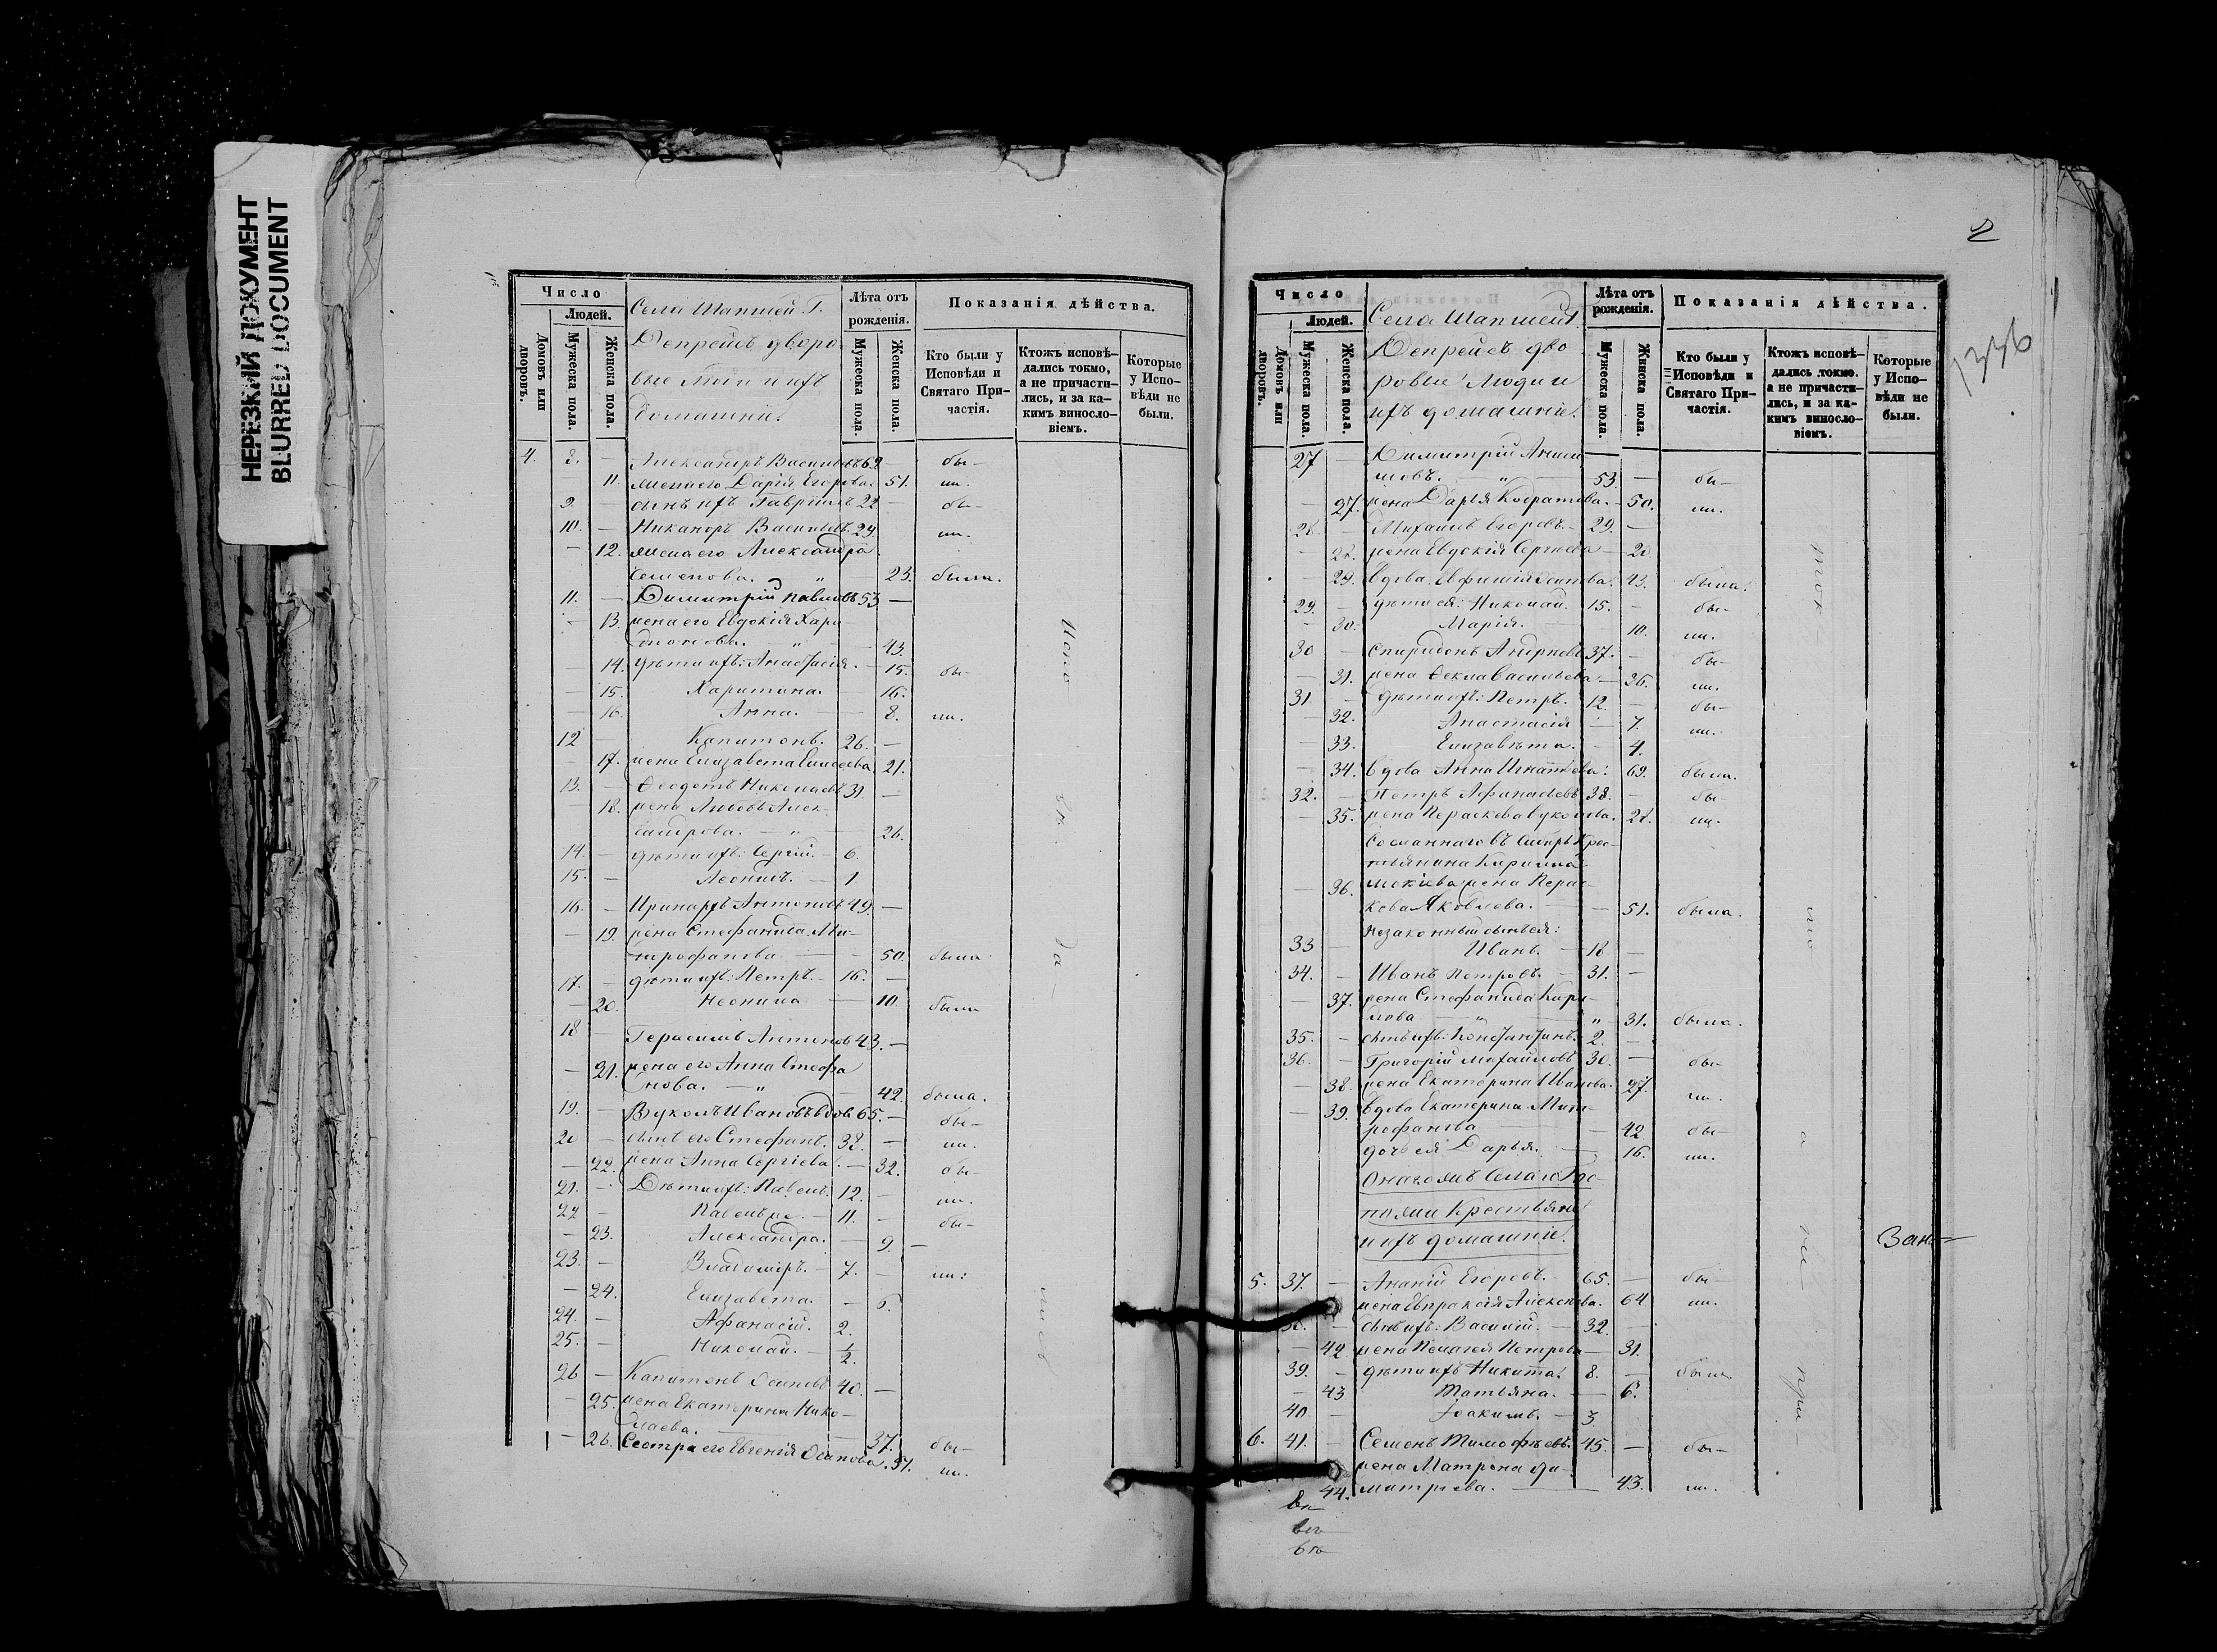 НЕРЕЗКИЙ ДОКУМЕНТ
BLURRED DOCUMENT
Число
Людей.
Домовъ или дворовъ.
Мужеска пола.
Женска пола.
Села Шапшей Г.
Депрейсъ дворо
вые люди и ихъ
домашніе.
Лѣта отъ рожденія.
Мужеска пола.
Женска пола.
Показанія дѣйства.
Кто были у Исповѣди и Святаго Причастія.
Ктожъ исповѣдались токмо, а не причастились, и за какимъ винословіемъ.
Которые у Исповѣди не были.
4. 8. — Александръ Васильевъ 69 — бы-
11. жена его Дарія Егорова. 51. ли.
9. — сынъ ихъ Гавріилъ 22 — бы-
10. — Никаноръ Васильевъ. 29 ли.
— 12. жена его Александра
Семенова. „ — 23. была.
11. — Димитрій Павловъ 53 —
— 13. жена его Евдокія Хари
тонова. „ — 43.
— 14. дѣти ихъ: Анастасія. — 15. бы-
— 15. Харитина. 16.
— 16. Анна. — 8. ли.
12 — Капитонъ. 26. —
— 17. жена Елизавета Елисеева 21.
13. — Ѳеодотъ Николаевъ 31. —
— 18. жена Любовь Алек-
сандрова. — „ — 26.
14. — дѣти ихъ: Сергій. — 6.
15. — Леонидъ. — 1.
16. — Иринархъ Антоновъ 49. —
— 19. жена Стефанида Ми-
трофанова — 50. была
17. — дѣти ихъ: Петръ. — 16. —
— 20. Неонила — 10. были
18 — Герасимъ Антоновъ 43. —
— 21. жена его Анна Стефа
нова. — „ — 42. была.
19. — Вуколъ Ивановъ вдов. 65. — бы-
20 — сынъ его Стефанъ. 38. — ли.
— 22. жена Анна Сергіева. — 32. бы-
21. — Дѣти ихъ: Павелъ. 12. — ли.
22 — Павелъ же. — 11. — бы-
— 23. Александра. — 9. —
23. — Владиміръ. — 7. — ли:
— 24. Елизавета. — 6.
24. — Афанасій. 2.
25. — Николай. — 1/2.
26 — Капитонъ Осиповъ 40. —
— 25. жена Екатерина Нико-
лаева. — 37. бы-
— 26. Сестра его Евгенія Осипова. 51. ли.
Испо
вѣ
да-
лись
2
1336
Число
Людей.
Домовъ или дворовъ.
Мужеска пола.
Женска пола.
Села Шапшей Г.
Депрейсъ дво
ровые люди и
ихъ домашніе.
Лѣта отъ рожденія.
Мужеска пола.
Женска пола.
Показанія дѣйства.
Кто были у Исповѣди и Святаго Причастія.
Ктожъ исповѣдались токмо, а не причастились, и за какимъ винословіемъ.
Которые у Исповѣди не были.
27 — Димитрій Аниси
мовъ. — „ — 53. — бы-
— 27. жена Дарья Кодратова. — 50. ли.
28. — Михаилъ Егоровъ. — 29. —
— 28. жена Евдокія Сергіева — 28
— 29. Вдова Евфимія Осипова. 43. была.
29. — дѣти ея: Николай. 15. — бы-
— 30. Марія. — 10. ли.
30 — Спиридонъ Андреевъ 37. — бы-
— 31. жена Ѳекла Васильева. — 36. ли.
31 — дѣти ихъ: Петръ. 12. — бы-
— 32. Анастасія — 7. ли.
— 33. Елизавета. — 4.
— 34. вдова Анна Игнатьева: 69. была.
32. — Петръ Афанасьевъ 38. — бы-
— 35. жена Параскева Вуколова. 28. ли.
Сосланнаго въ Сибирь Крес-
тьянина Кирилла
— 36. жена Парас-
кева Яковлева. — 51. была.
Незаконный сынъ ея:
33 — Иванъ. — 18 —
34. — Иванъ Петровъ. — 31. —
— 37. жена Стефанида Кири-
лова — „ — „ — 31. была.
35. — сынъ ихъ: Константинъ. 2. —
36. — Григорій Михайловъ 30. — бы-
— 38. жена Екатерина Иванова. 27. ли.
— 39. Вдова Екатерина Мит-
рофанова — 42 бы-
дочь ея Дарья. — 16. ли.
Онагожъ Села Го
споди Крестьяне
и ихъ домашніе.
5. 37. — Ананій Егоровъ. — 65. — бы-
жена Евпраксія Алексѣева. 64 ли.
38. — сынъ ихъ: Василій. — 32. —
— 42 жена Пелагея Петрова — 31.
39. — дѣти ихъ Никита. 8. — были
— 43 Татьяна. — 6.
40. — Іоакимъ. — 3
6. 41. — Семенъ Тимофѣевъ. 45. — бы-
жена Матрона Ди-
44. митріева. — 43. ли.
ток-
мо
а
не
при-
Зан-